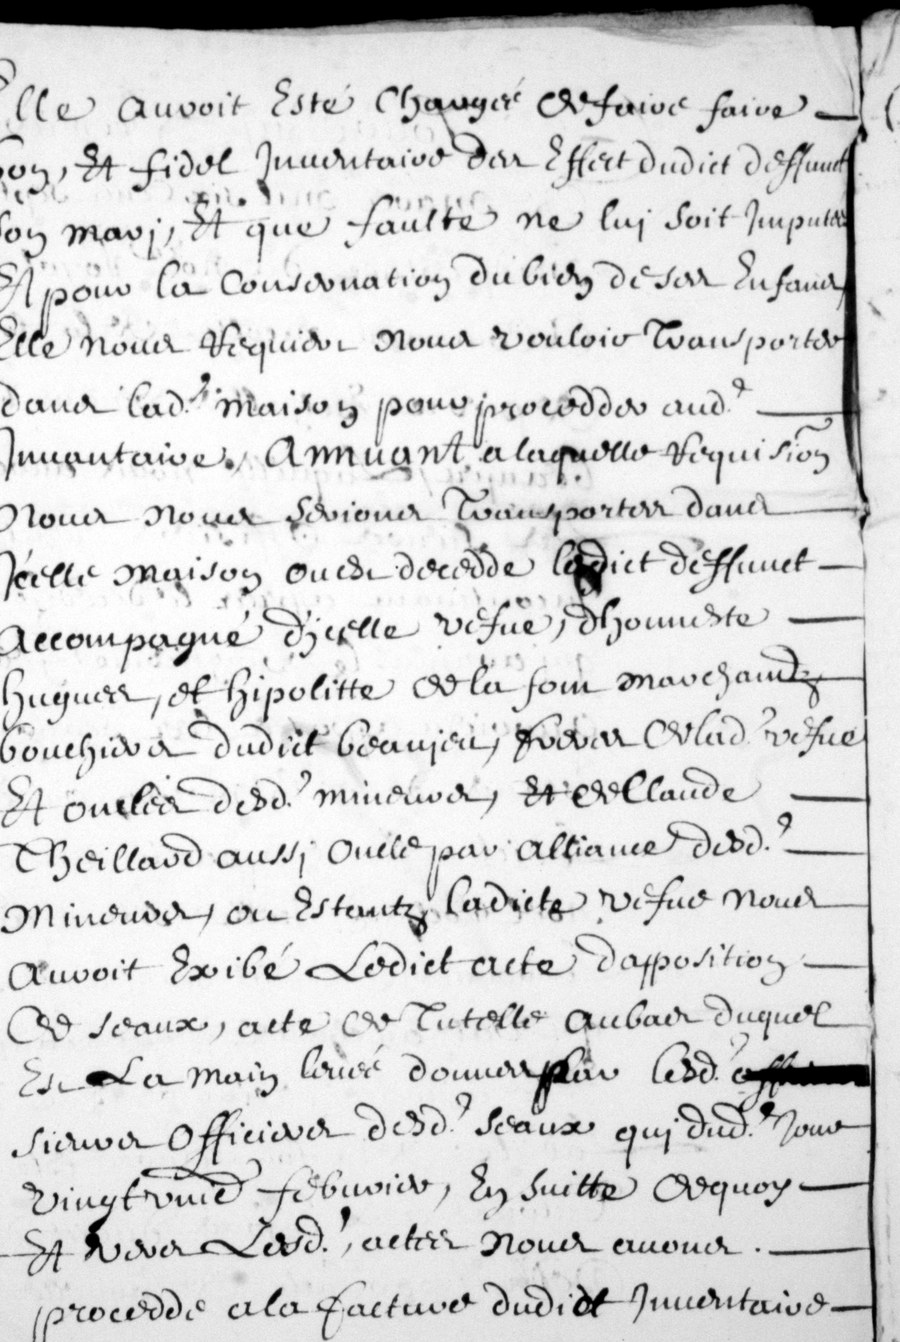 Elle auvoit Esté Chargéé de faire faire
bon, Et fidel Inventaire des Effect dudict deffunct
son marj, Et que faulte ne luj soit Imputeé
Et pour la Conservation du bien de ses Enfans,
Elle nous Requiert nous vouloir Transporter
dans lad.e maison pour procedder aud.t
Inventaire, Annuant a laquelle Requision
Nous nous serions Transportes dans
Jcelle maison ou est decedde ledict deffunct
accompagné d'jcelle vefue, d'honneste
hugues, et hipolitte de la font marchandz
bouchiers dudict beaujeu, freres de lad.e vefue
Et oncles desd.s mineurs, Et de Claude
Theillard aussj oncle par alliance desd.s
Mineurs, ou Estantz ladicte vefue nous
auvoit Exibé Ledict acte dapposition
de seaux, acte de Tutelle au bas duquel
Est La main leveé donneé par lesd.s
sieurs Officiers desd.s seaux qui dud.t Jour
vingt febvrier, En suitte de quoy
Et veus Lesd.s actes nous avons
procedde a la facture dudict Inventaire